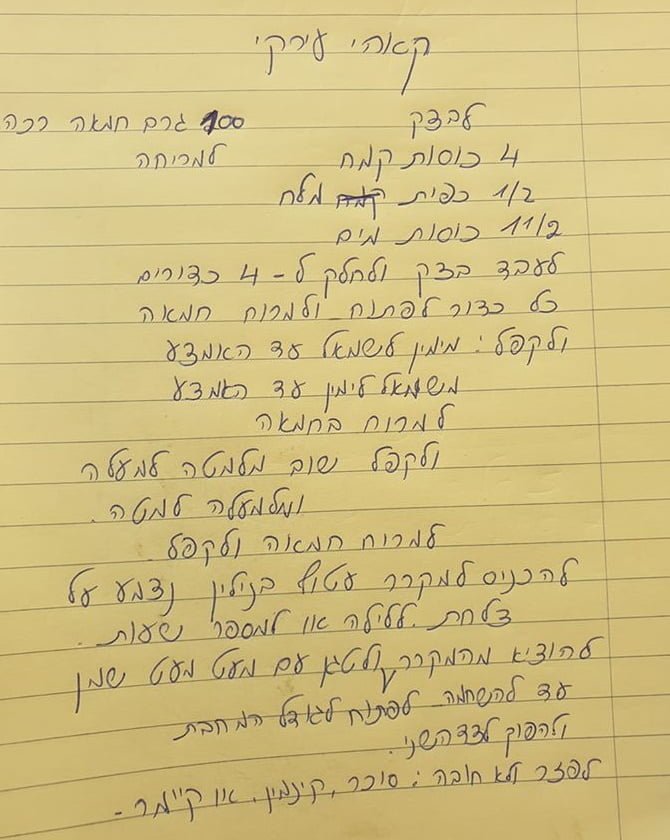 קאהי עירקי
לבצק
100 גרם חמאה רכה
למריחה
4 כוסות קמח
1/2 כפית מלח
1 1/2 כוסות מים
לעבד בצק ולחלק ל-4 כדורים
כל כדור לפתוח ולמרוח חמאה
ולקפל: מימין לשמאל עד האמצע
משמאל לימין עד האמצע
למרוח בחמאה
ולקפל שוב מלמטה למעלה
ומלמעלה למטה.
למרוח חמאה ולקפל.
להכניס למקרר עטוף בניילון על
צלחת. ללילה או למספר שעות.
להוציא מהמקרר ולטגן עם מעט מעט שמן
עד להשחמה לפתוח לגודל המחבת
ולהפוך לצד השני.
לפזר ולא חובה: סוכר, קינמין, או קיימר -